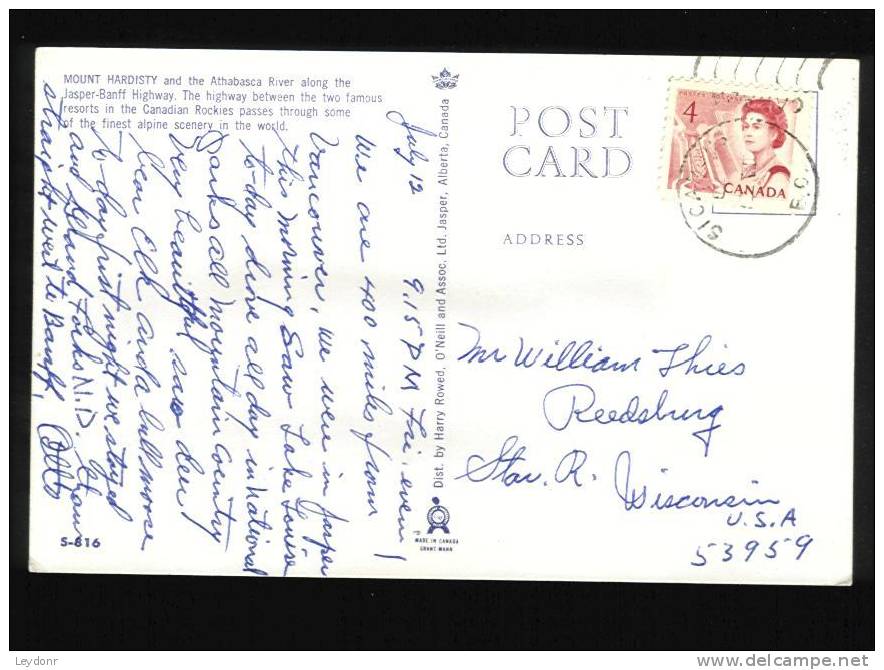 MOUNT HARDISTY and the Athabasca River along the
Jasper-Banff Highway. The highway between the two famous
resorts in the Canadian Rockies passes through some
of the finest alpine scenery in the world.
July 12 9.15 PM Fri. even
We are 400 miles from
Vancouver, we were in Jasper
this morning Saw Lake Louise
to-day drive all day in National
Parks all mountain country
Very beautiful saw deer
bear Elk and a bull moose
to-day first night we stayed
and Grand Forks N.D.
straight west to Banff,
S-816
Dist. by Harry Rowed, O'Neill and Assoc. Ltd. Jasper, Alberta, Canada
MADE IN CANADA
GRANT MANN
POST
CARD
ADDRESS
4
CANADA
B.C.
Mr William Thies
Reedsburg
Star. R. Wisconsin
U.S.A
53959
Leydonr